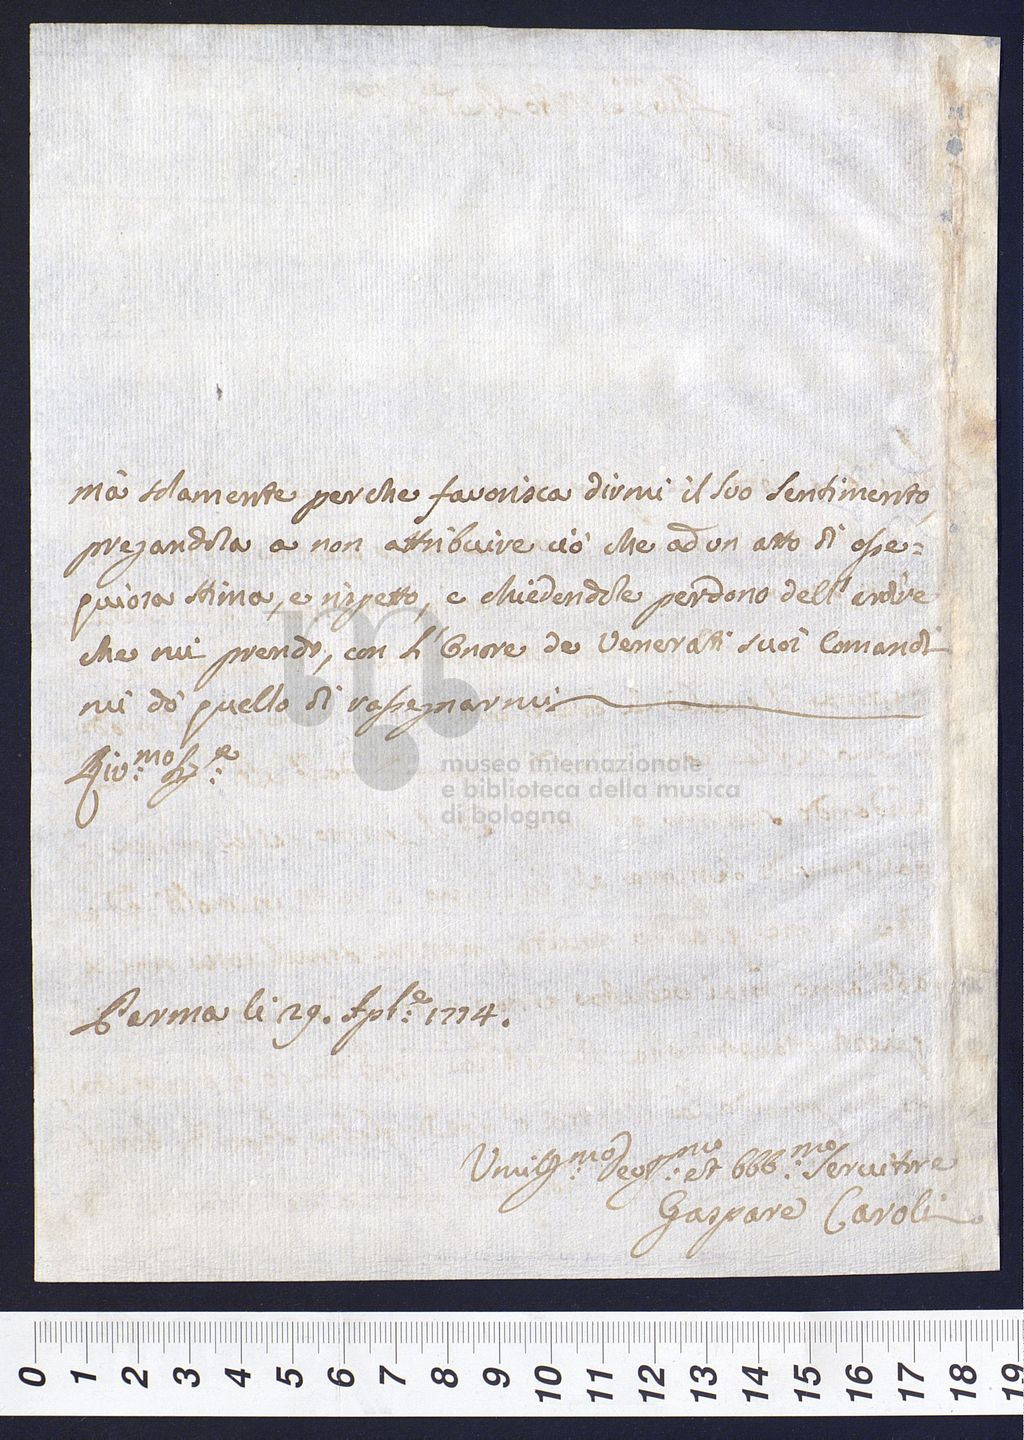 mà solamente perche favorisca dirmi il Suo Sentimento
pregandola a non attribuire ciò che ad un atto di osse=
quiosa stima, e rispetto, e chiedendole perdono dell' ardire
che mi prendo, con l' Onore de Venerati suoi Comandi
mi dò quello di rassegnarmi
museo internazionale
e biblioteca della musica
di bologna
Parma li 29. Aple: 1774.
Umilmo: Devmo: et Obbmo: Servitore
Gaspare Caroli
0 1 2 3 4 5 6 7 8 9 10 11 12 13 14 15 16 17 18 19